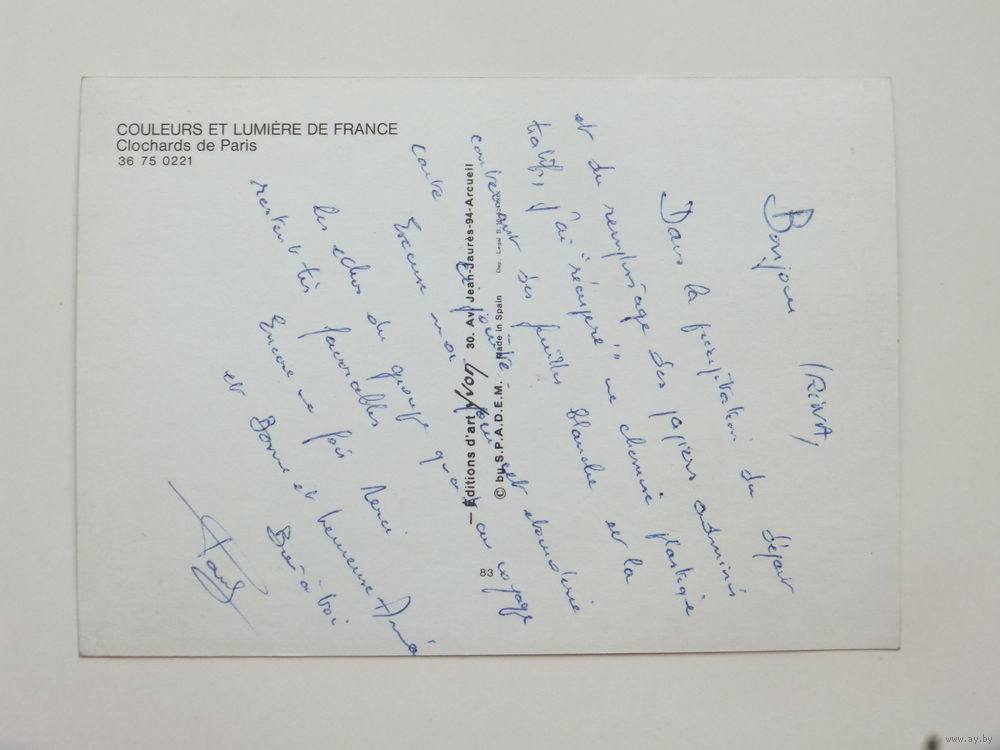 COULEURS ET LUMIÈRE DE FRANCE
Clochards de Paris
36 75 0221
— Éditions d'art Yvon 30. Av. Jean-Jaurès-94-Arcueil
© by S.P.A.D.E.M. Made in Spain Dep. Legal B.
83
Bonjour IRINA,
Dans la précipitation du départ
et du remplissage des papiers adminis
tratifs, j'ai "récupéré" une chemise plastique
contenant des feuilles blanches et la
carte
Excuse moi
les echos du groupe quant au voyage
restent très favorables
Encore une fois Merci
et Bonne et heureuse Année
à toi
www.ay.by